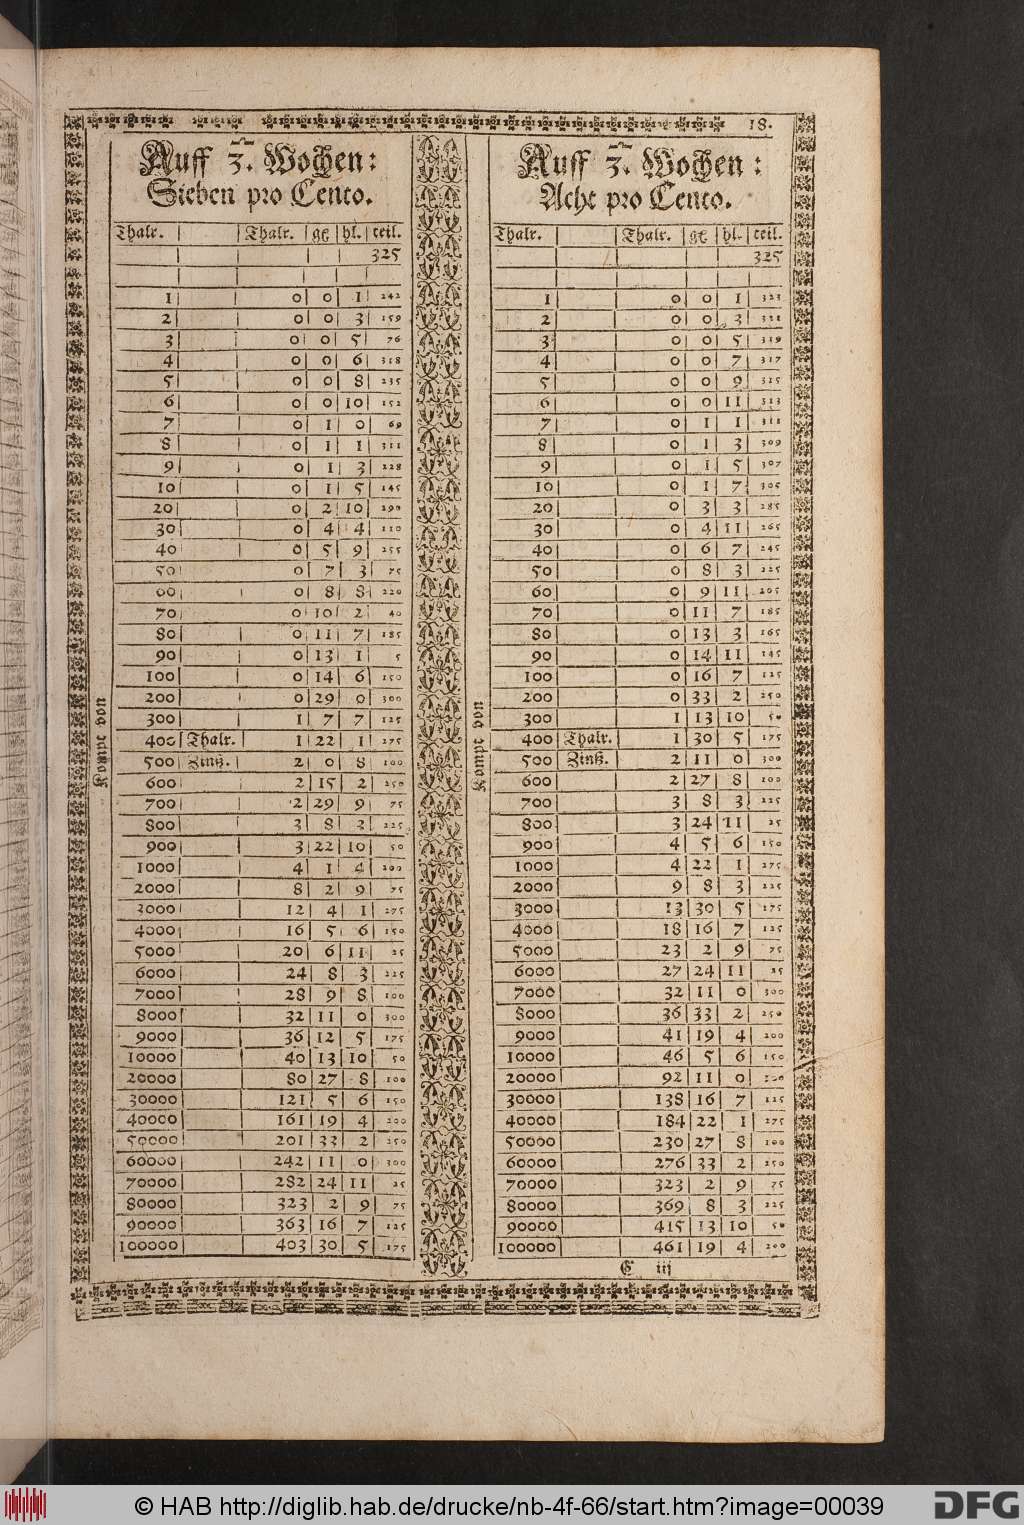 18.
Auff 3. Wochen:
Sieben pro Cento.
Thalr. Thalr. gℓ hl. teil.
325
1 0 0 1 242
2 0 0 3 159
3 0 0 5 76
4 0 0 6 318
5 0 0 8 235
6 0 0 10 152
7 0 1 0 69
8 0 1 1 311
9 0 1 3 228
10 0 1 5 145
20 0 2 10 290
30 0 4 4 110
40 0 5 9 255
50 0 7 3 75
60 0 8 8 220
70 0 10 2 40
80 0 11 7 185
90 0 13 1 5
100 0 14 6 150
200 0 29 0 300
300 1 7 7 125
400 Thalr. 1 22 1 275
500 Zinß. 2 0 8 100
600 2 15 2 250
700 2 29 9 75
800 3 8 3 225
900 3 22 10 50
1000 4 1 4 200
2000 8 2 9 75
3000 12 4 1 275
4000 16 5 6 150
5000 20 6 11 25
6000 24 8 3 225
7000 28 9 8 100
8000 32 11 0 300
9000 36 12 5 175
10000 40 13 10 50
20000 80 27 8 100
30000 121 5 6 150
40000 161 19 4 200
50000 201 33 2 250
60000 242 11 0 300
70000 282 24 11 25
80000 323 2 9 75
90000 363 16 7 125
100000 403 30 5 175
Kompt von
Auff 3. Wochen:
Acht pro Cento.
Thalr. Thalr. gℓ hl. teil.
325
1 0 0 1 323
2 0 0 3 321
3 0 0 5 319
4 0 0 7 317
5 0 0 9 315
6 0 0 11 313
7 0 1 1 311
8 0 1 3 309
9 0 1 5 307
10 0 1 7 305
20 0 3 3 285
30 0 4 11 265
40 0 6 7 245
50 0 8 3 225
60 0 9 11 205
70 0 11 7 185
80 0 13 3 165
90 0 14 11 145
100 0 16 7 125
200 0 33 2 250
300 1 13 10 50
400 Thalr. 1 30 5 175
500 Zinß. 2 11 0 300
600 2 27 8 100
700 3 8 3 225
800 3 24 11 25
900 4 5 6 150
1000 4 22 1 275
2000 9 8 3 225
3000 13 30 5 175
4000 18 16 7 125
5000 23 2 9 75
6000 27 24 11 25
7000 32 11 0 300
8000 36 33 2 250
9000 41 19 4 200
10000 46 5 6 150
20000 92 11 0 300
30000 138 16 7 125
40000 184 22 1 275
50000 230 27 8 100
60000 276 33 2 250
70000 323 2 9 75
80000 369 8 3 225
90000 415 13 10 50
100000 461 19 4 200
Kompt von
C iij
© HAB http://diglib.hab.de/drucke/nb-4f-66/start.htm?image=00039
DFG